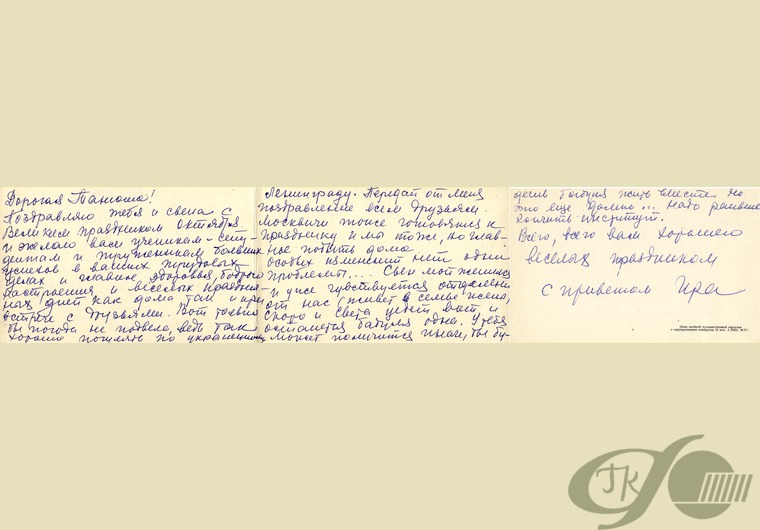 Дорогая Танюша!
Поздравляю тебя и света с
Великим праздником октября
и желаю вам ученикам-сту-
дентам и труженикам больших
успехов в ваших трудовых
делах и главное здоровья, бодрого
настроения и веселых празднич-
ных дней как дома так и при
встрече с друзьями. Вот только
бы погода не подвела, ведь так
хорошо погулять по украшенному
Ленинграду. Передай от меня
поздравление всем друзьям.
Москвичи тоже готовятся к
празднику и мы тоже, но глав-
ное побыть дома
Особых изменений нет одни
проблемы.... Сын мой женился
и уже чувствуется отдаленность
от нас (живет в семье жены,
скоро и Света уедет вот и
останется бабуля одна. У тебя
может получится иначе, ты бу-
дешь бабуля жить вместе но
это еще должно... Надо раньше
кончить институт.
Всего, всего вам хорошего
веселых праздников
с приветом Ира
ГК